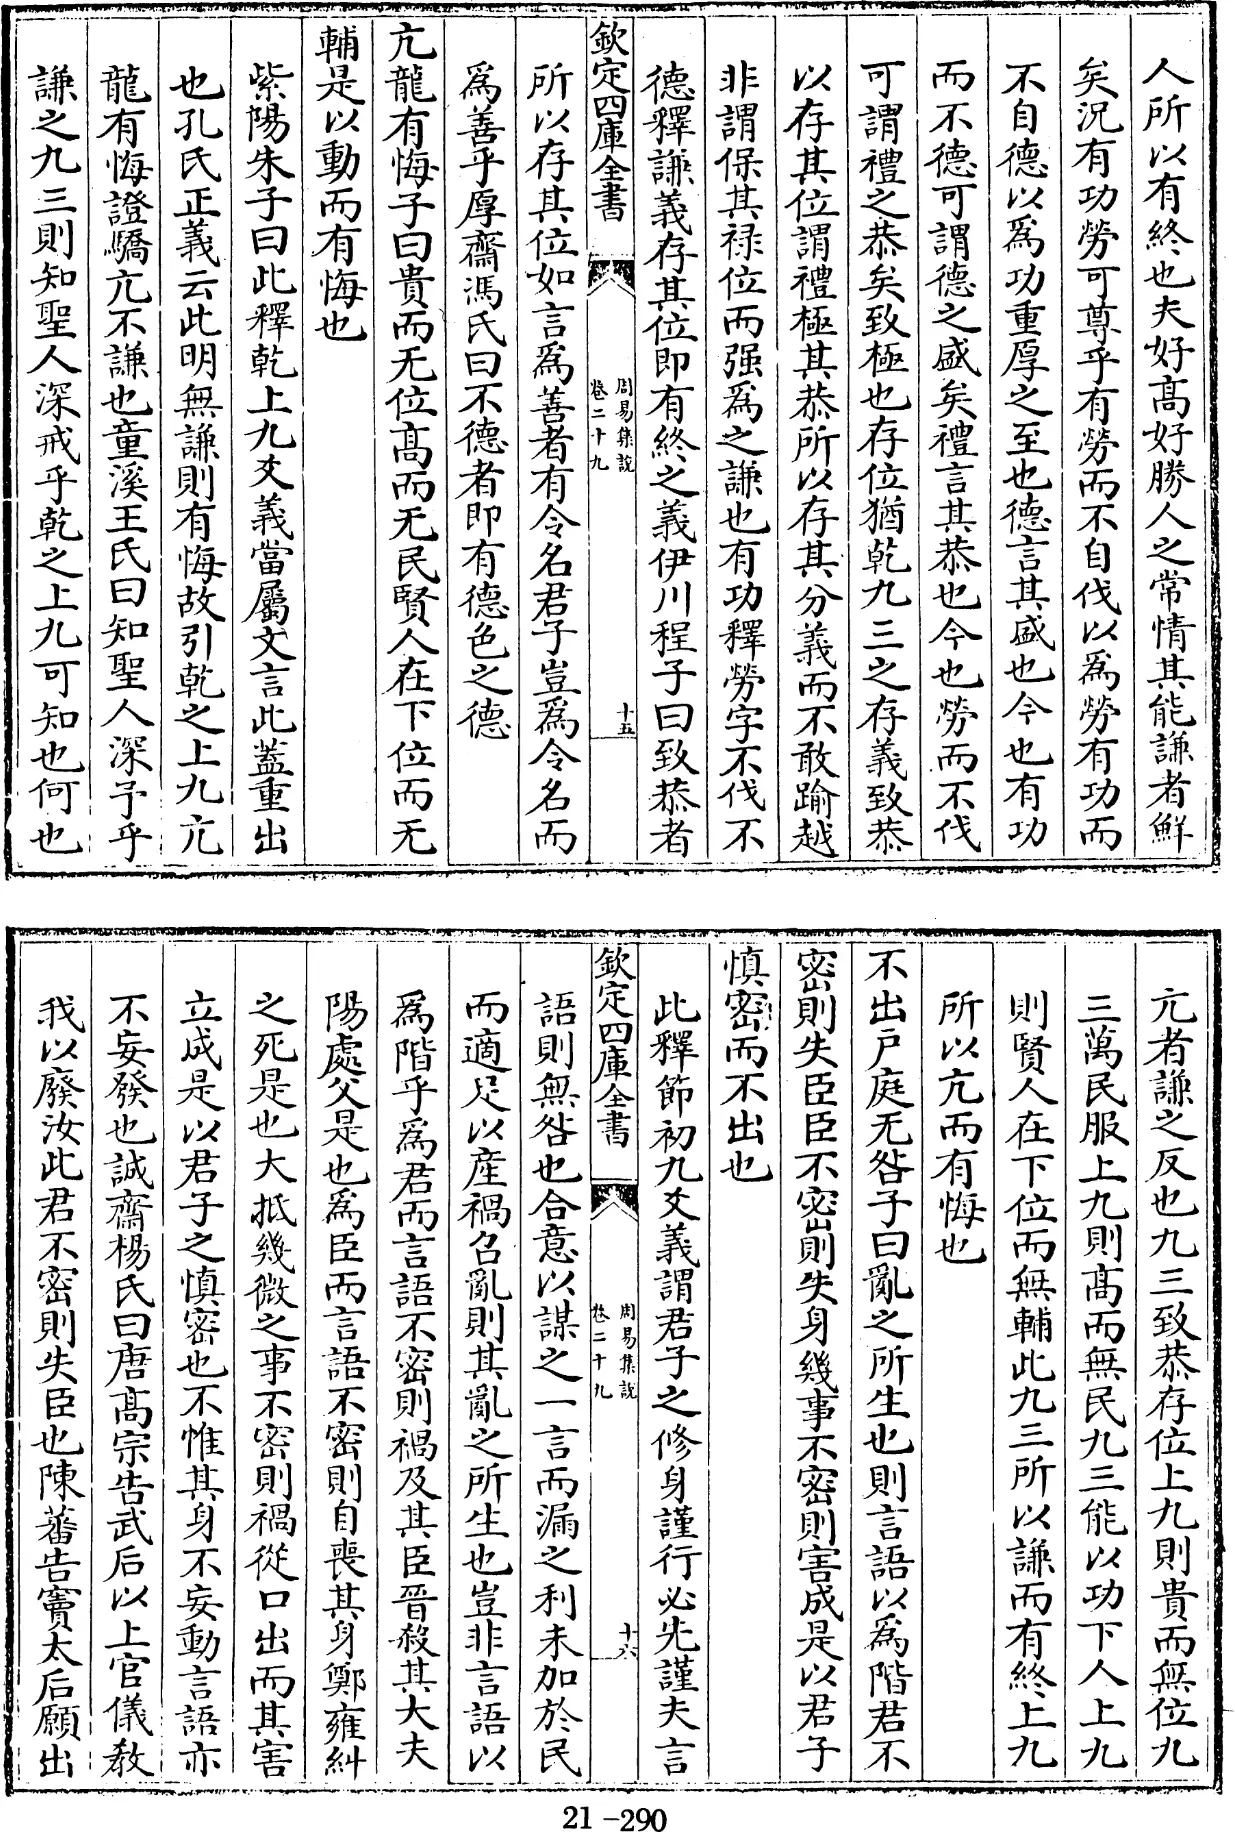 人所以有終也夫好髙好勝人之常情其能謙者鮮
矣况有功勞可尊乎有勞而不自伐以爲勞有功而
不自德以爲功重厚之至也德言其盛也今也有功
而不德可謂德之盛矣禮言其恭也今也勞而不伐
可謂禮之恭矣致極也存位猶乾九三之存義致恭
以存其位謂禮極其恭所以存其分義而不敢踰越
非謂保其禄位而强爲之謙也有功釋勞字不伐不
德釋謙義存其位即有終之義伊川程子曰致恭者
欽定四庫全書
周易集說
卷二十九
十五
所以存其位如言爲善者有令名君子豈爲令名而
爲善乎厚齋馮氏曰不德者即有德色之德
亢龍有悔子曰貴而无位髙而无民賢人在下位而无
輔是以動而有悔也
紫陽朱子曰此釋乾上九爻義當屬文言此蓋重出
也孔氏正義云此明無謙則有悔故引乾之上九亢
龍有悔證驕亢不謙也童溪王氏曰知聖人深予乎
謙之九三則知聖人深戒乎乾之上九可知也何也
亢者謙之反也九三致恭存位上九則貴而無位九
三萬民服上九則髙而無民九三能以功下人上九
則賢人在下位而無輔此九三所以謙而有終上九
所以亢而有悔也
不出戸庭无咎子曰亂之所生也則言語以爲階君不
密則失臣臣不密則失身幾事不密則害成是以君子
慎密而不出也
此釋節初九爻義謂君子之修身謹行必先謹夫言
欽定四庫全書
周易集說
卷二十九
十六
語則無咎也合意以謀之一言而漏之利未加於民
而適足以産禍召亂則其亂之所生也豈非言語以
爲階乎爲君而言語不密則禍及其臣晉殺其大夫
陽處父是也爲臣而言語不密則自喪其身鄭雍糾
之死是也大抵幾微之事不密則禍從口出而其害
立成是以君子之慎密也不惟其身不妄動言語亦
不妄發也誠齋楊氏曰唐髙宗告武后以上官儀教
我以廢汝此君不密則失臣也陳蕃告竇太后願出
21-290